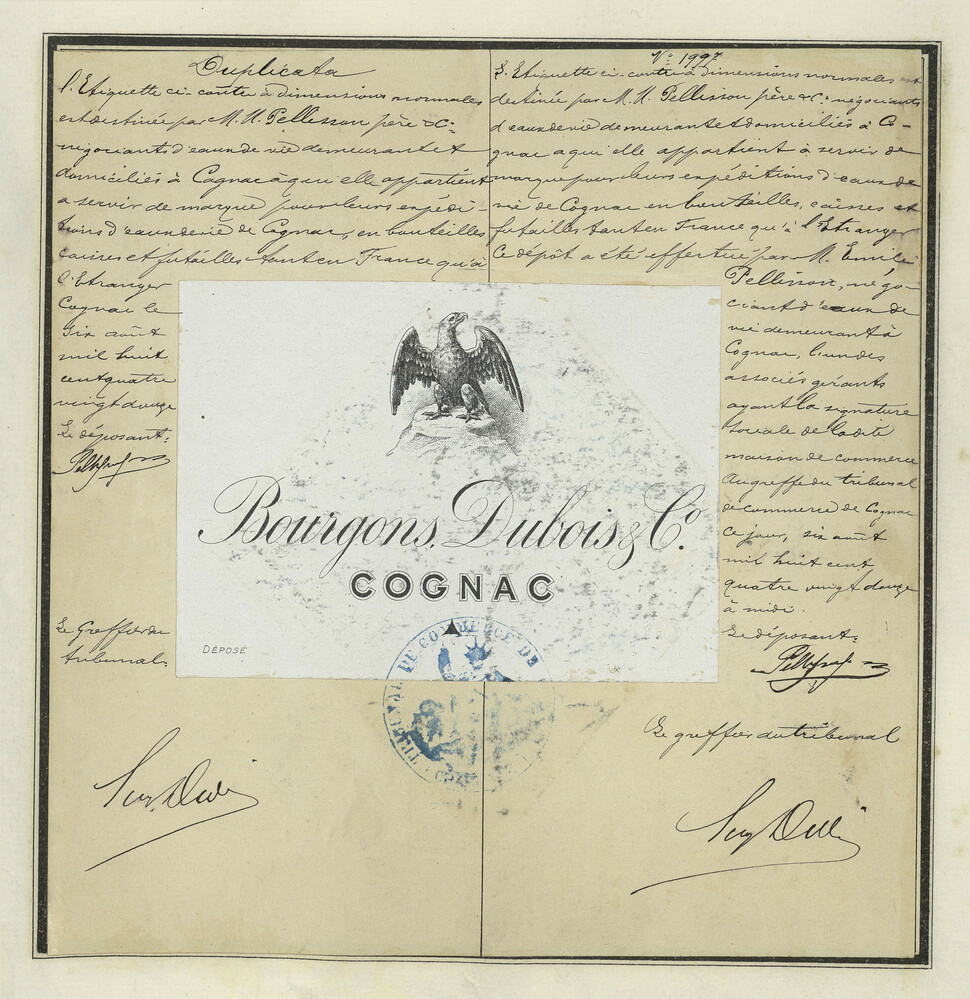 Duplicata
L'Etiquette ci-contre à dimensions normales
est destinée par M.M. Pellisson père & Cie
négociants d'eaux de vie demeurant et
domiciliés à Cognac à qui elle appartient
a servir de marque pour leurs expédi-
tions d'eaux de vie de Cognac, en bouteilles
caisses et futailles tant en France qu'à
l'Etranger
Cognac le
six août
mil huit
cent quatre
vingt douze
Le déposant.
Le Greffier du
tribunal.
No 1997
L'Etiquette ci-contre à dimensions normales est
destinée par M.M. Pellisson père & Cie négociants
d'eaux de vie demeurant et domiciliés à Co-
gnac a qui elle appartient à servir de
marque pour leurs expéditions d'eaux de
vie de Cognac en bouteilles, caisses et
futailles tant en France qu'à l'Etranger
Ce dépôt a été effectué par M. Emile
Pellisson, négo-
ciant d'eaux de
vie demeurant à
Cognac, l'un des
associés gérants
ayant la signature
sociale de la dite
maison de commerce
Au greffe du tribunal
de commerce de Cognac
Ce jour, six août
mil huit cent
quatre vingt douze
à midi.
Le déposant.
Le greffier du tribunal
Bourgons, Dubois & Co.
COGNAC
DÉPOSÉ
TRIBUNAL DE COMMERCE DE